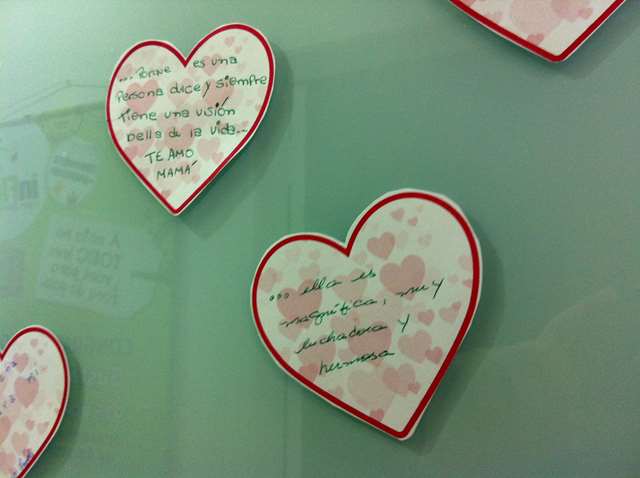 ...PORQUE es una
Persona dulce y siempre
tiene una visión
bella de la vida...
TE AMO
MAMÁ
... ella es
magnífica, muy
luchadora y
hermosa